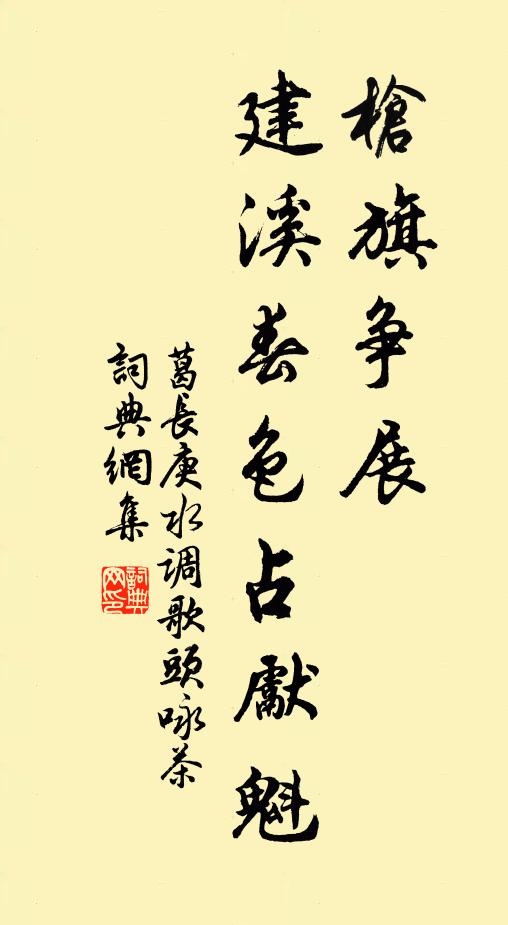 槍旗争展
建溪春色占獻魁
葛長庚水调歌頭咏茶
詞典網集
詞典
网印